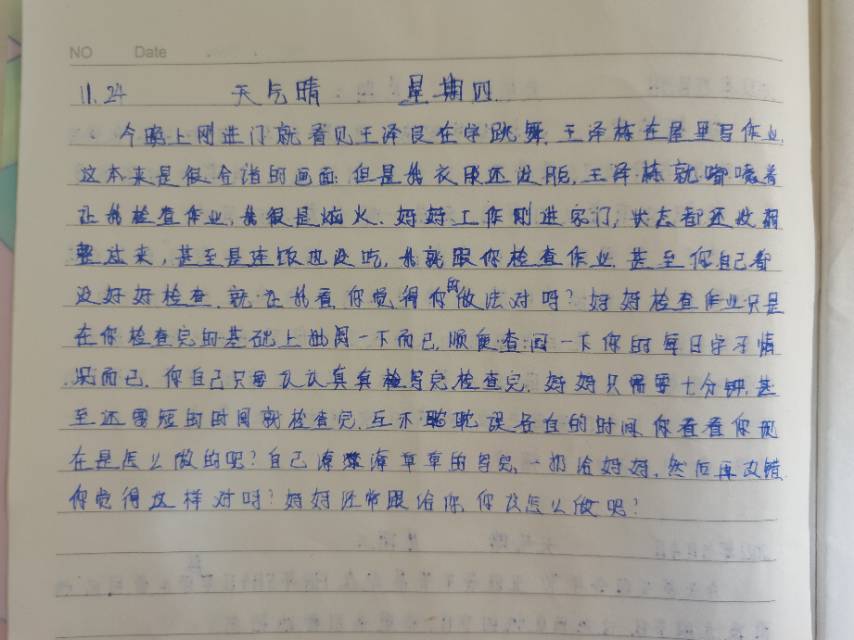 NO Date
11.24 天气晴 星期四
今晚上刚进门就看见王泽良在学跳舞,王泽栋在屋里写作业,
这本来是很合谐的画面,但是我衣服还没脱,王泽栋就嘟囔着
让我检查作业,我很是恼火。妈妈工作刚进家门,状态都还没调
整过来,甚至是连饭也没吃,我就跟你检查作业,甚至你自己都
没好好检查,就让我看,你觉得你的做法对吗?妈妈检查作业只是
在你检查完的基础上批阅一下而已,顺便查阅一下你的每日学习情
况而已.你自己只要认认真真写完检查完,妈妈只需要十分钟,甚
至还要短的时间就检查完,互不耽误各自的时间,你看看你现
在是怎么做的呢?自己潦潦草草的写完,一扔给妈妈,然后再改错
你觉得这样对吗?妈妈经常跟你,你该怎么做呢?